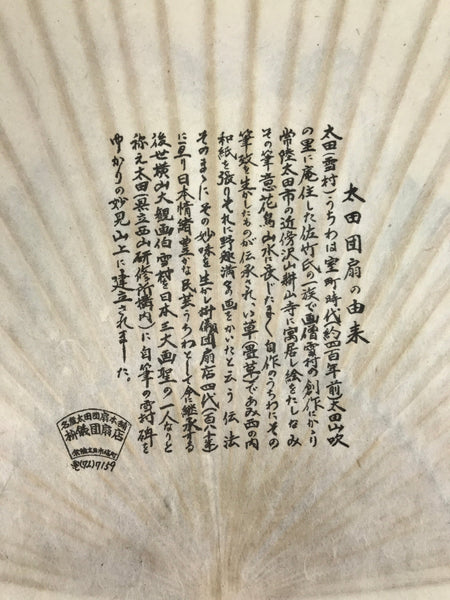 太田団扇の由来
太田(雪村)うちわは室町時代約四百年前太田山吹
の里に庵住した佐竹氏の一族で画僧雪村の創作にかゝり
常陸太田市の近傍沢山耕山寺に寓居し絵をたしなみ
その筆意花鳥山水に長じたまゝ自作のうちわにその
筆致を生かしたものが伝承されい草(畳草)であみ西の内
和紙を張りそれに野趣満々の画をかいたと云う伝法
そのまゝにその妙味を生かし枡儀団扇店四代(百八十年)
に亘り日本情緒豊かな民芸うちわとして今に継承する
後世横山大観画伯雪村を日本三大画聖の一人なりと
称え太田(県立西山研修所構内)に自筆の雪村碑を
ゆかりの妙見山上に建立されました。
名産太田団扇本舗
枡儀団扇店
常陸太田市
(72)7159